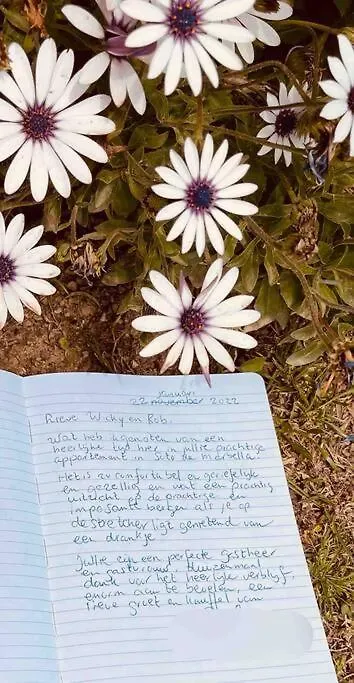 januari
22 november 2022
Lieve Wicky en Rob,
Wat heb ik genoten van een
heerlijke tijd hier in jullie prachtige
appartement in Soto de Marbella.
Het is zo comfortabel en gerieflijk
en gezellig en wat een prachtig
uitzicht op de prachtige en
imposante bergen als je op
de stretcher ligt genietend van
een drankje.
Jullie zijn een perfecte gastheer
en gastvrouw. Duizendmaal
dank voor het heerlijke verblijf,
enorm aan te bevelen, een
lieve groet en knuffel van